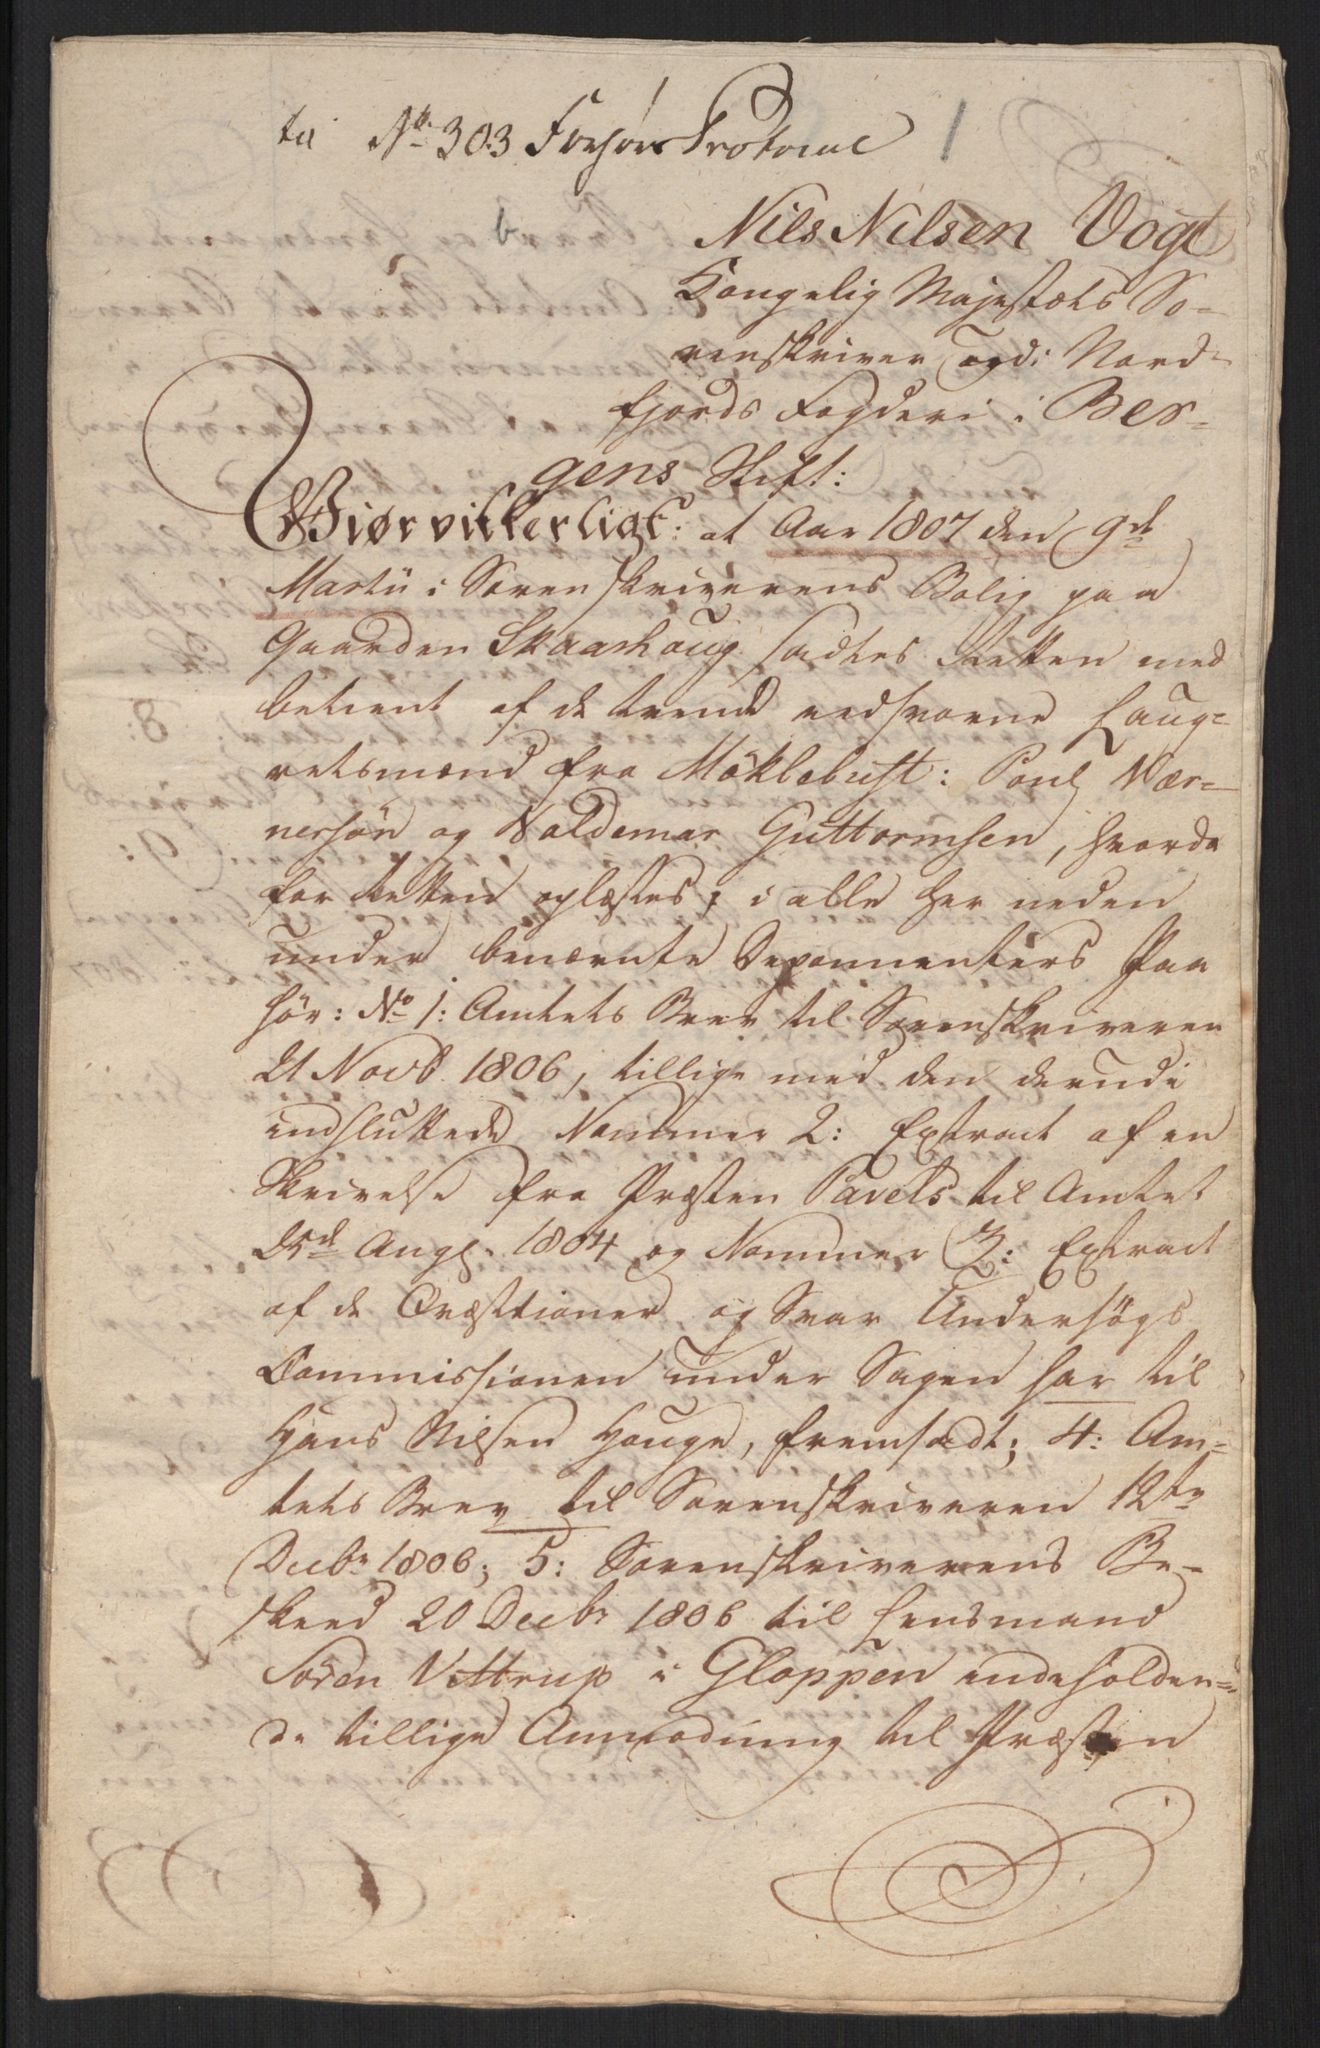 til No 303 Forhørs Protocol 1
b
Nils Nilsen Vogt
Kongelig Majestæts So-
renskriver ved Nord-
fjords Fogderi i Ber-
gens Stift:
Giør vitterligt: at Aar 1807 den 9de
Martii i Sorenskriverens Bolig paa
Gaarden Skaarhaug sadtes Retten med
betient af de tvende eedsvorne Laug-
retsmænd fra Möklebust: Poul Vær-
nersön og Valdemar Guttormsen, hvorda
for Retten oplæstes, i alle her neden
under benævnte Deponnenters Paa
hör: No 1: Amtets Brev til Sorenskriveren
21 Novb. 1806, tillige med den derudi
indsluttede Nommer 2: Extract af en
Skrivelse fra Præsten Pavels til Amtet
25de Aug. 1804 og Nommer 3: Extract
af de Qvæstioner og Svar Undersögs
Commissionen under Sagen har til
Hans Nilsen Houge, fremsadt; 4: Am-
tets Brev til Sorenskriveren 12te
Decbr 1806; 5: Sorenskriverens Be-
skeed 20 Decbr 1806 til Lensmand
Sören Vittrup i Gloppen indeholden-
de tillige Anmodning til Præsten